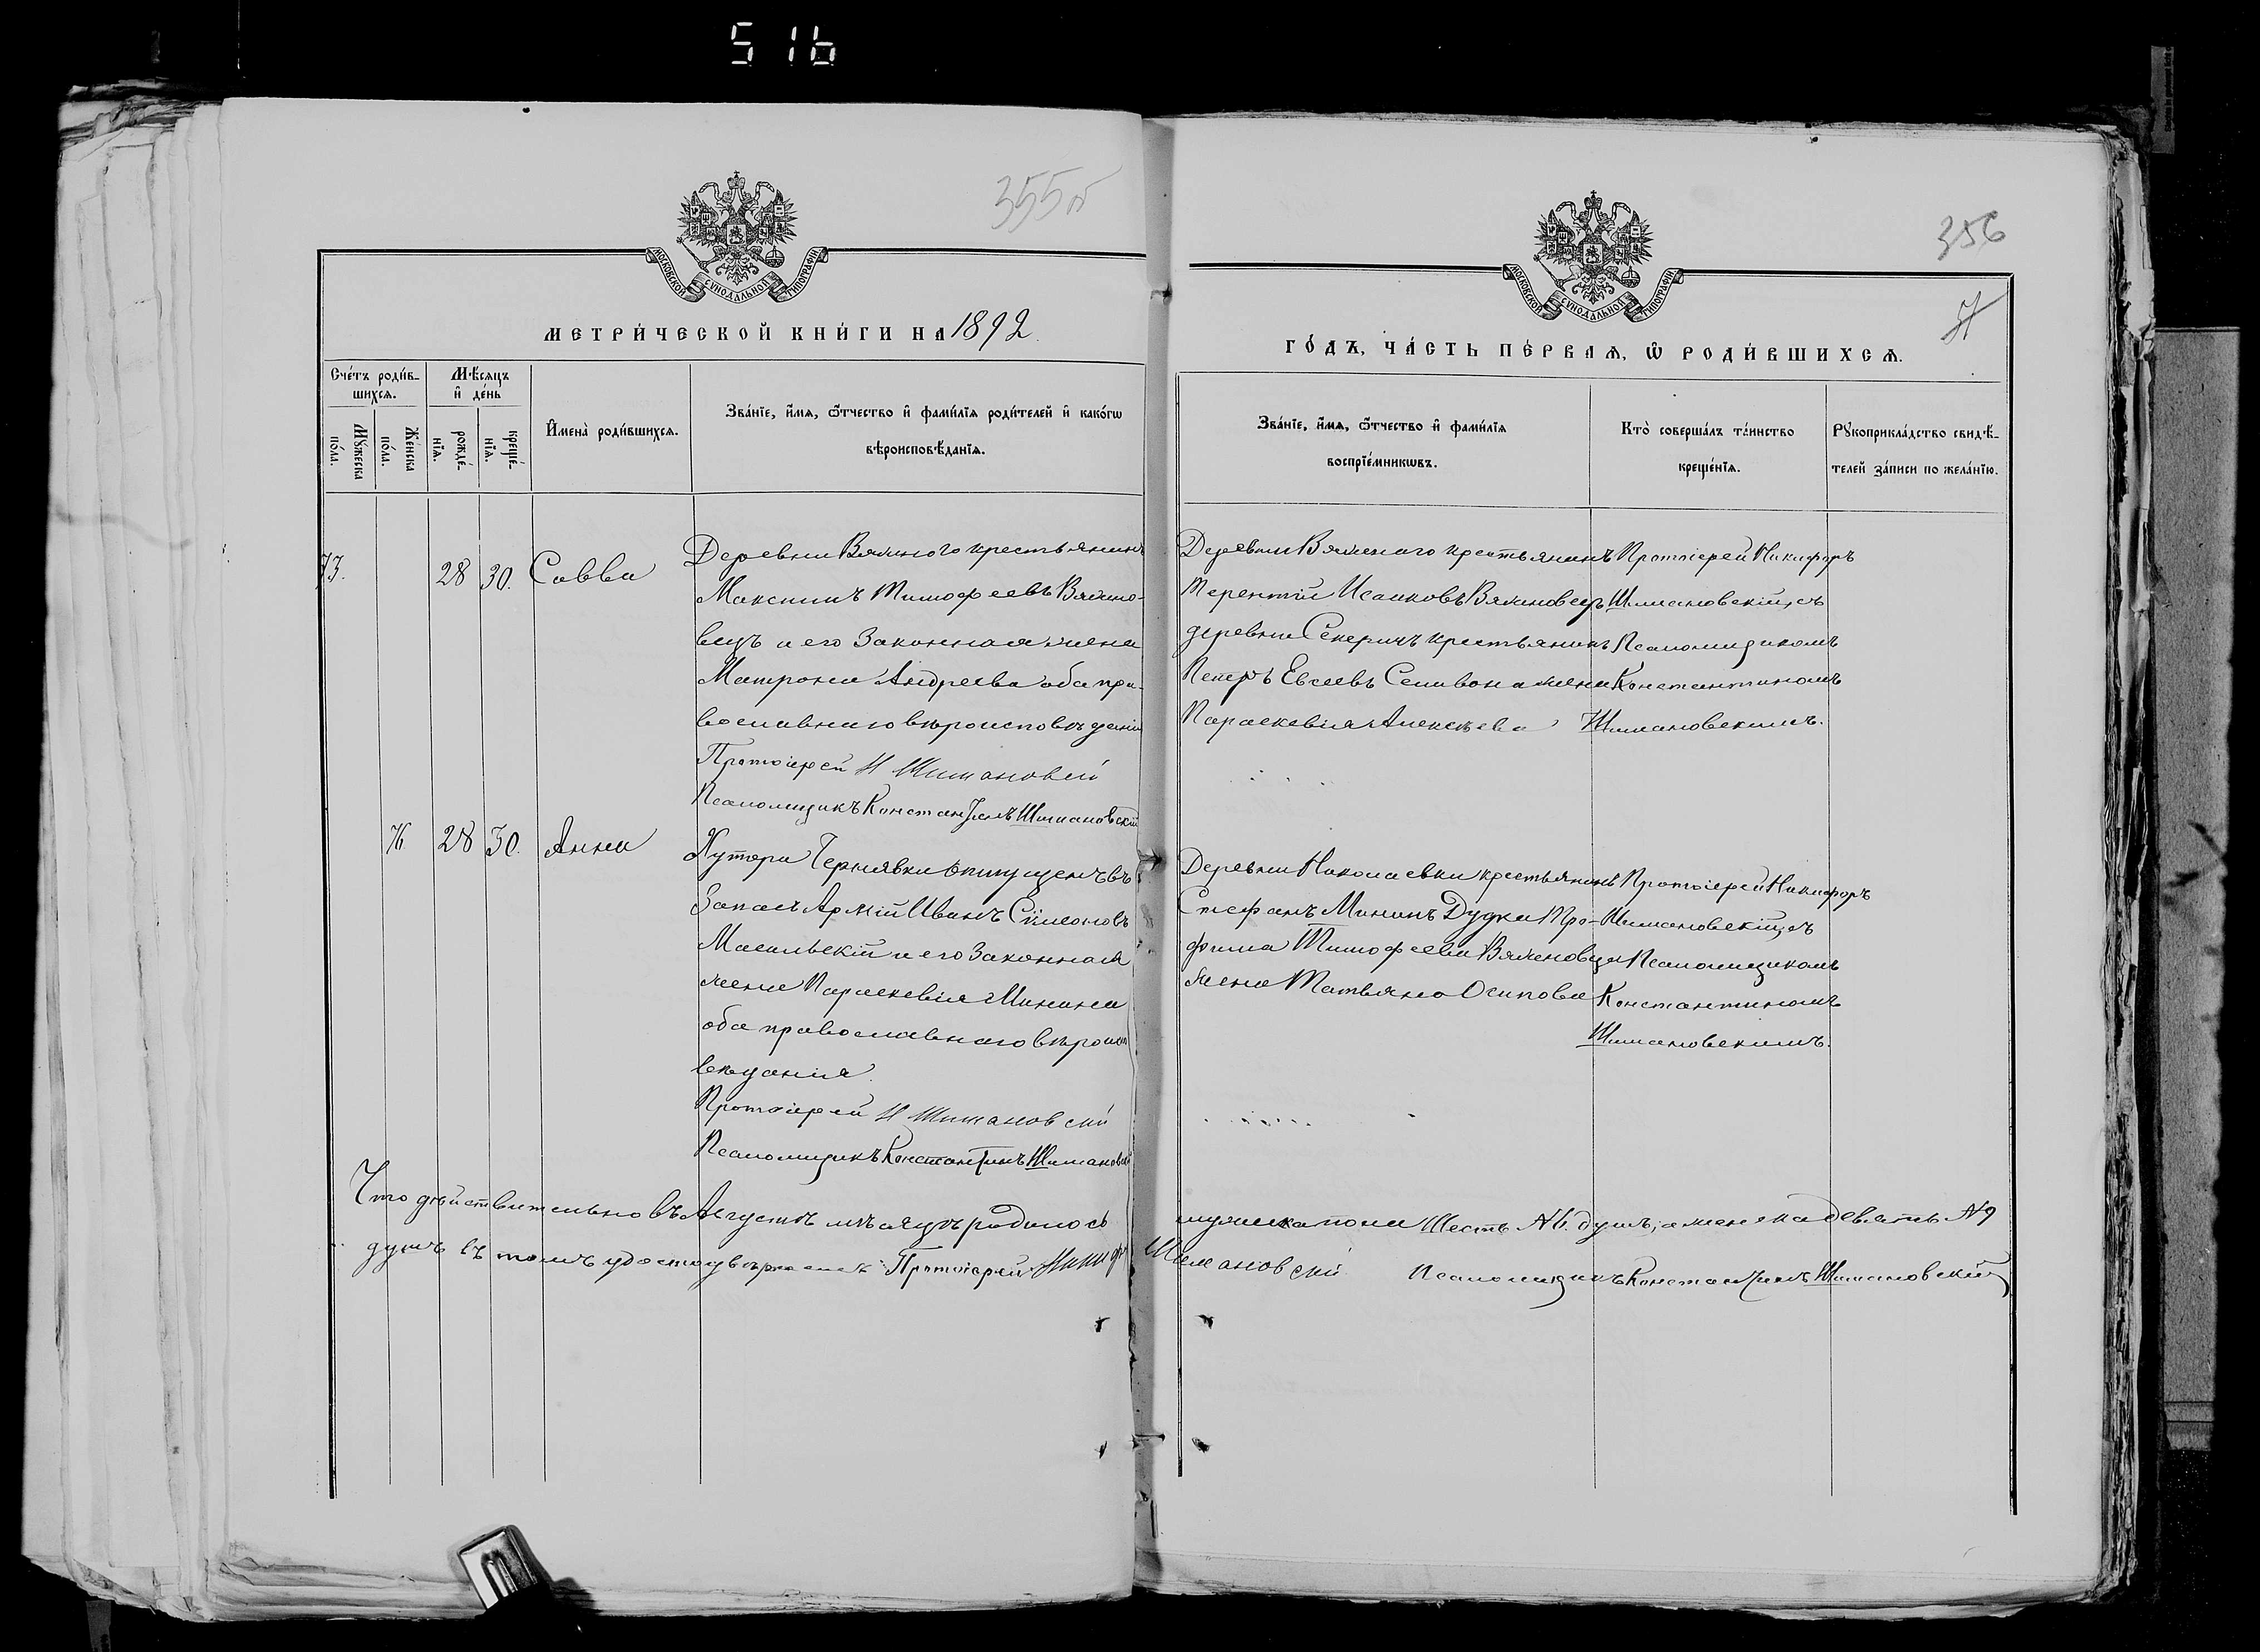 516
355об
МОСКОВСКОЙ СѴНОДАЛЬНОЙ ТИПОГРАФІИ
МЕТРИ́ЧЕСКОЙ КНИ́ГИ НА 1892
Сче́тъ роди́в-
шихсѧ.
Мꙋжеска по́ла.
Же́нска по́ла.
Мѣ́сѧцъ и҆ де́нь
рожде́нїѧ.
креще́нїѧ.
И҆мена̀ роди́вшихсѧ.
Зва́нїе, и҆́мѧ, ѻ҆́тчество и҆ фами́лїѧ роди́телей и҆ како́гѡ
вѣроисповѣ́данїѧ.
73.
28
30.
Савва
Деревни Вяжного крестьянинъ
Максимъ Тимофеевъ Вяжно-
вецъ и его законная жена
Матрона Андреева оба пра-
вославнаго вѣроисповѣданія
Протоіерей Н Шимановскій
Псаломщикъ Константинъ Шимановскій
28
30.
Анна
Хутора Чернявки отпущенъ въ
Запасъ Арміи Иванъ Сѵмеоновъ
Масальскій и его законная
жена Параскевія Минина
оба православнаго вѣроиспо
вѣданія.
Протоіерей Н Шимановскій
Псаломщикъ Константинъ Шимановскій
Что дѣйствительно въ Августѣ мѣсяцѣ родилось
душъ въ томъ удостовѣряемъ Протоіерей Никифоръ
356
МОСКОВСКОЙ СѴНОДАЛЬНОЙ ТИПОГРАФІИ
ГО́ДЪ, ЧА́СТЬ ПЕ́РВАѦ, Ѡ҆ РОДИ́ВШИХСѦ.
Зва́нїе, и҆́мѧ, ѻ҆́тчество и҆ фами́лїѧ
воспрїе́мникѡвъ.
Кто̀ соверша́лъ та́инство
креще́нїѧ.
Рꙋкоприкла́дство свидѣ́-
телей за́писи по жела́нїю.
Деревни Вяжнаго крестьянинъ
Терентій Исаковъ Вяжновецъ
деревни Секеричъ крестьянина
Петръ Евсеевъ Селивона жена
Параскевія Алексѣева
Протоіерей Никифоръ
Шимановскій, съ
Псаломщикомъ
Константиномъ
Шимановскимъ.
Деревни Николаевки крестьянинъ
Стефанъ Мининъ Дудка Тро-
фима Тимофеева Вяжновца
жена Татьяна Осипова
Протоіерей Никифоръ
Шимановскій, съ
Псаломщикомъ
Константиномъ
Шимановскимъ.
мужска пола Шесть №6. душъ, а женска девять №9
Шимановскій Псаломщикъ Константинъ Шимановскій